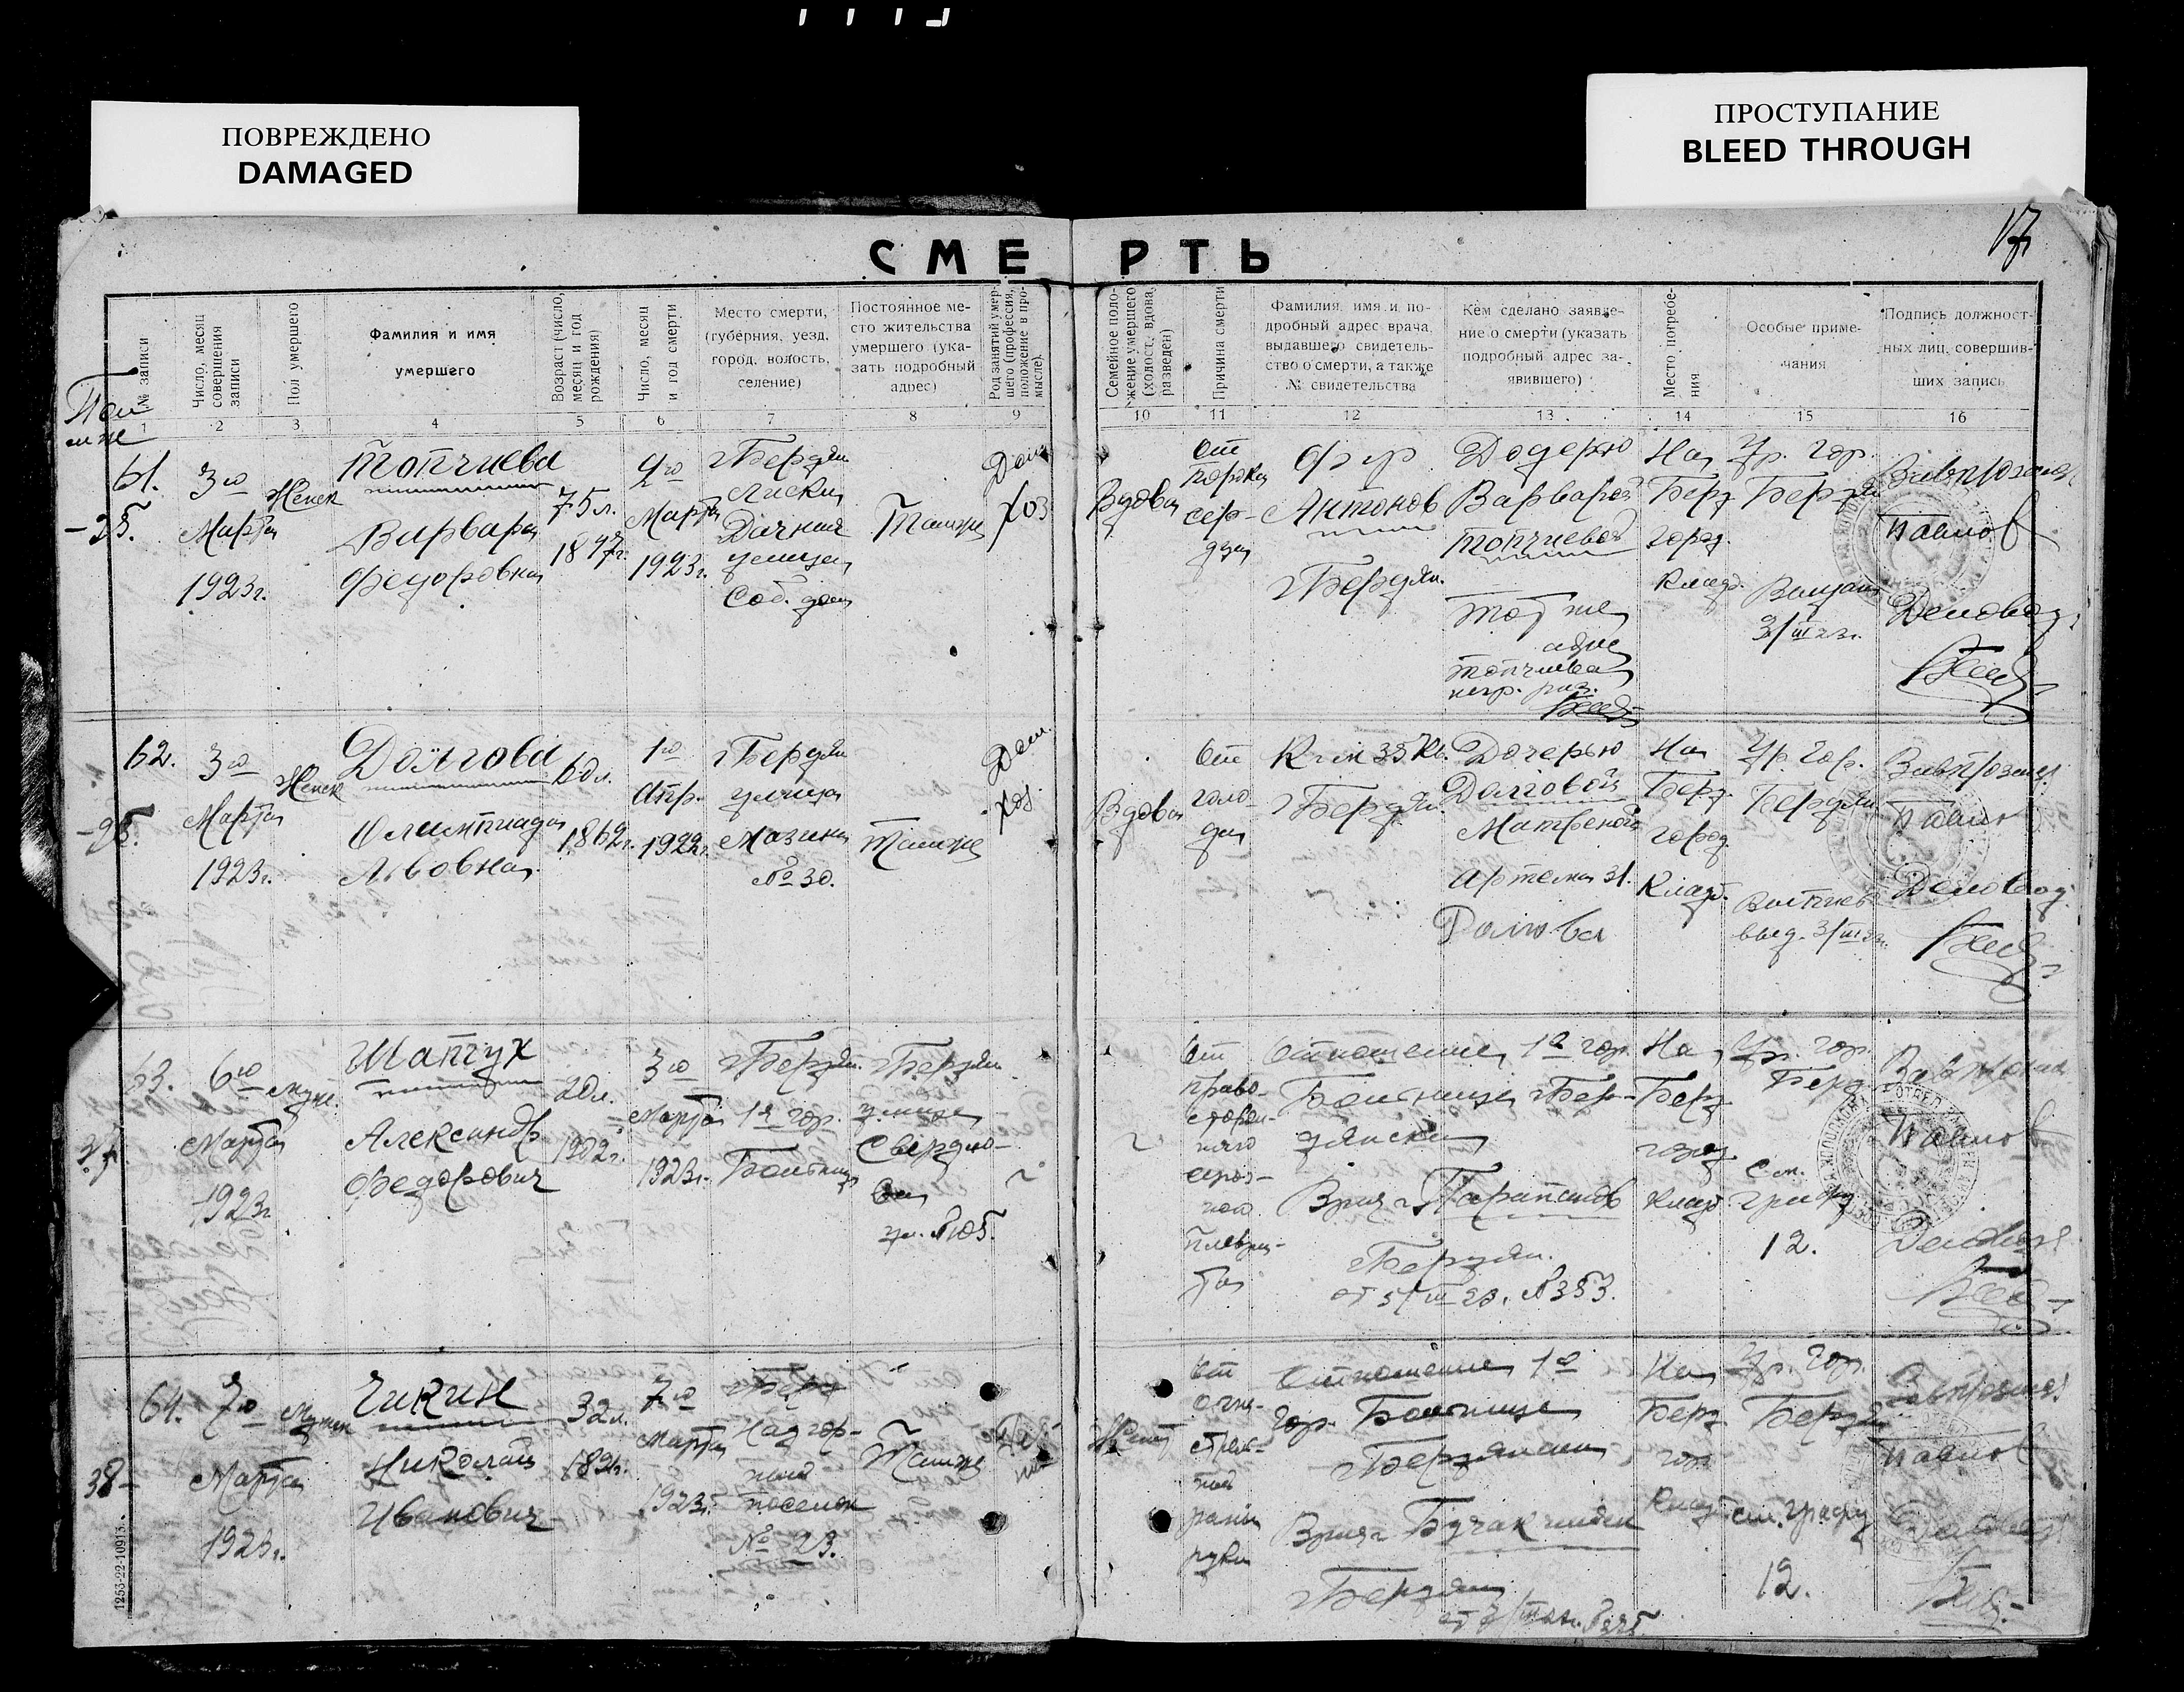 ПОВРЕЖДЕНО
DAMAGED
ПРОСТУПАНИЕ
BLEED THROUGH
17
СМЕРТЬ
№ записи
Число, месяц совершения записи
Пол умершего
Фамилия и имя умершего
Возраст (число, месяц и год рождения)
Число, месяц и год смерти
Место смерти, (губерния, уезд, город, волость, селение)
Постоянное место жительства умершего (указать подробный адрес)
Род занятий умершего (профессия, положение в промысле).
Семейное положение умершего (холост, вдова, разведен)
Причина смерти
Фамилия, имя и подробный адрес врача, выдавшего свидетельство о смерти, а также № свидетельства
Кем сделано заявление о смерти (указать подробный адрес заявившего)
Место погребения
Особые примечания
Подпись должностных лиц, совершивших запись
1 2 3 4 5 6 7 8 9 10 11 12 13 14 15 16
61.
3го
Марта
1923г.
Женск
Топчиева
Варвара
Федоровна
75л.
1847г.
Марта
1923г.
г Бердян
Дачная
улица
Соб. дом
Также
Дом
хоз
Вдова
От
порока
сер-
дца
Антонов
г Бердян.
Дочерью
Варварой
Топчиевой
Тот же
адрес
Топчиева
негр. раз.
На
Берд
город.
Кладб.
Ур. гор.
Бердян
3/III 23г.
Завтрозаг
Павлов
Деловод.
62.
3го
Марта
1923г.
Женск
Долгова
Олимпиада
Львовна
60л.
1862г.
1го
Апр.
1922г.
г Бердян
улица
Мазина
№ 30.
Также
Дом.
хоз.
Вдова
От
голо-
да
г Бердян.
Дочерью
Долговой
Матреной
Артема 31.
Долгова
На
Берд.
город.
Кладб.
Ур. гор.
Бердян
выд. 3/III 23г.
Павлов
Деловод.
63.
37.
6го
Марта
1923г
Муж.
Шапчух
Александр
Федорович
20л.
1902г.
3го
Марта
1923г.
г Бердян.
1я гор.
Больница
г Бердян
улица
Свердло-
ва
От
право-
сторон-
него
плеври-
та
Отношение 1й гор.
Больницы г Бер-
дянска
Врач
г Бердян.
от 5/III 23. № 353.
На
Берд
город.
Кладб.
Ур. гор.
Берд
См.
графу
12.
Павлов
Деловод
64.
38-
7го
Марта
1923г.
Мужск
Чикин
Николай
Иванович
32л.
1891г.
7го
Марта
1923г.
Нагор-
ный
поселок
№ 23.
Также
Женат
От
огне-
стрел-
ной
раны
руки
Отношение 1й
гор. Больницы
г Бердянска
Врач
г Бердян
На
Берд
гор
Кладб
Ур. гор.
Бердян
см. графу
12.
Павлов
1253-22-10913.